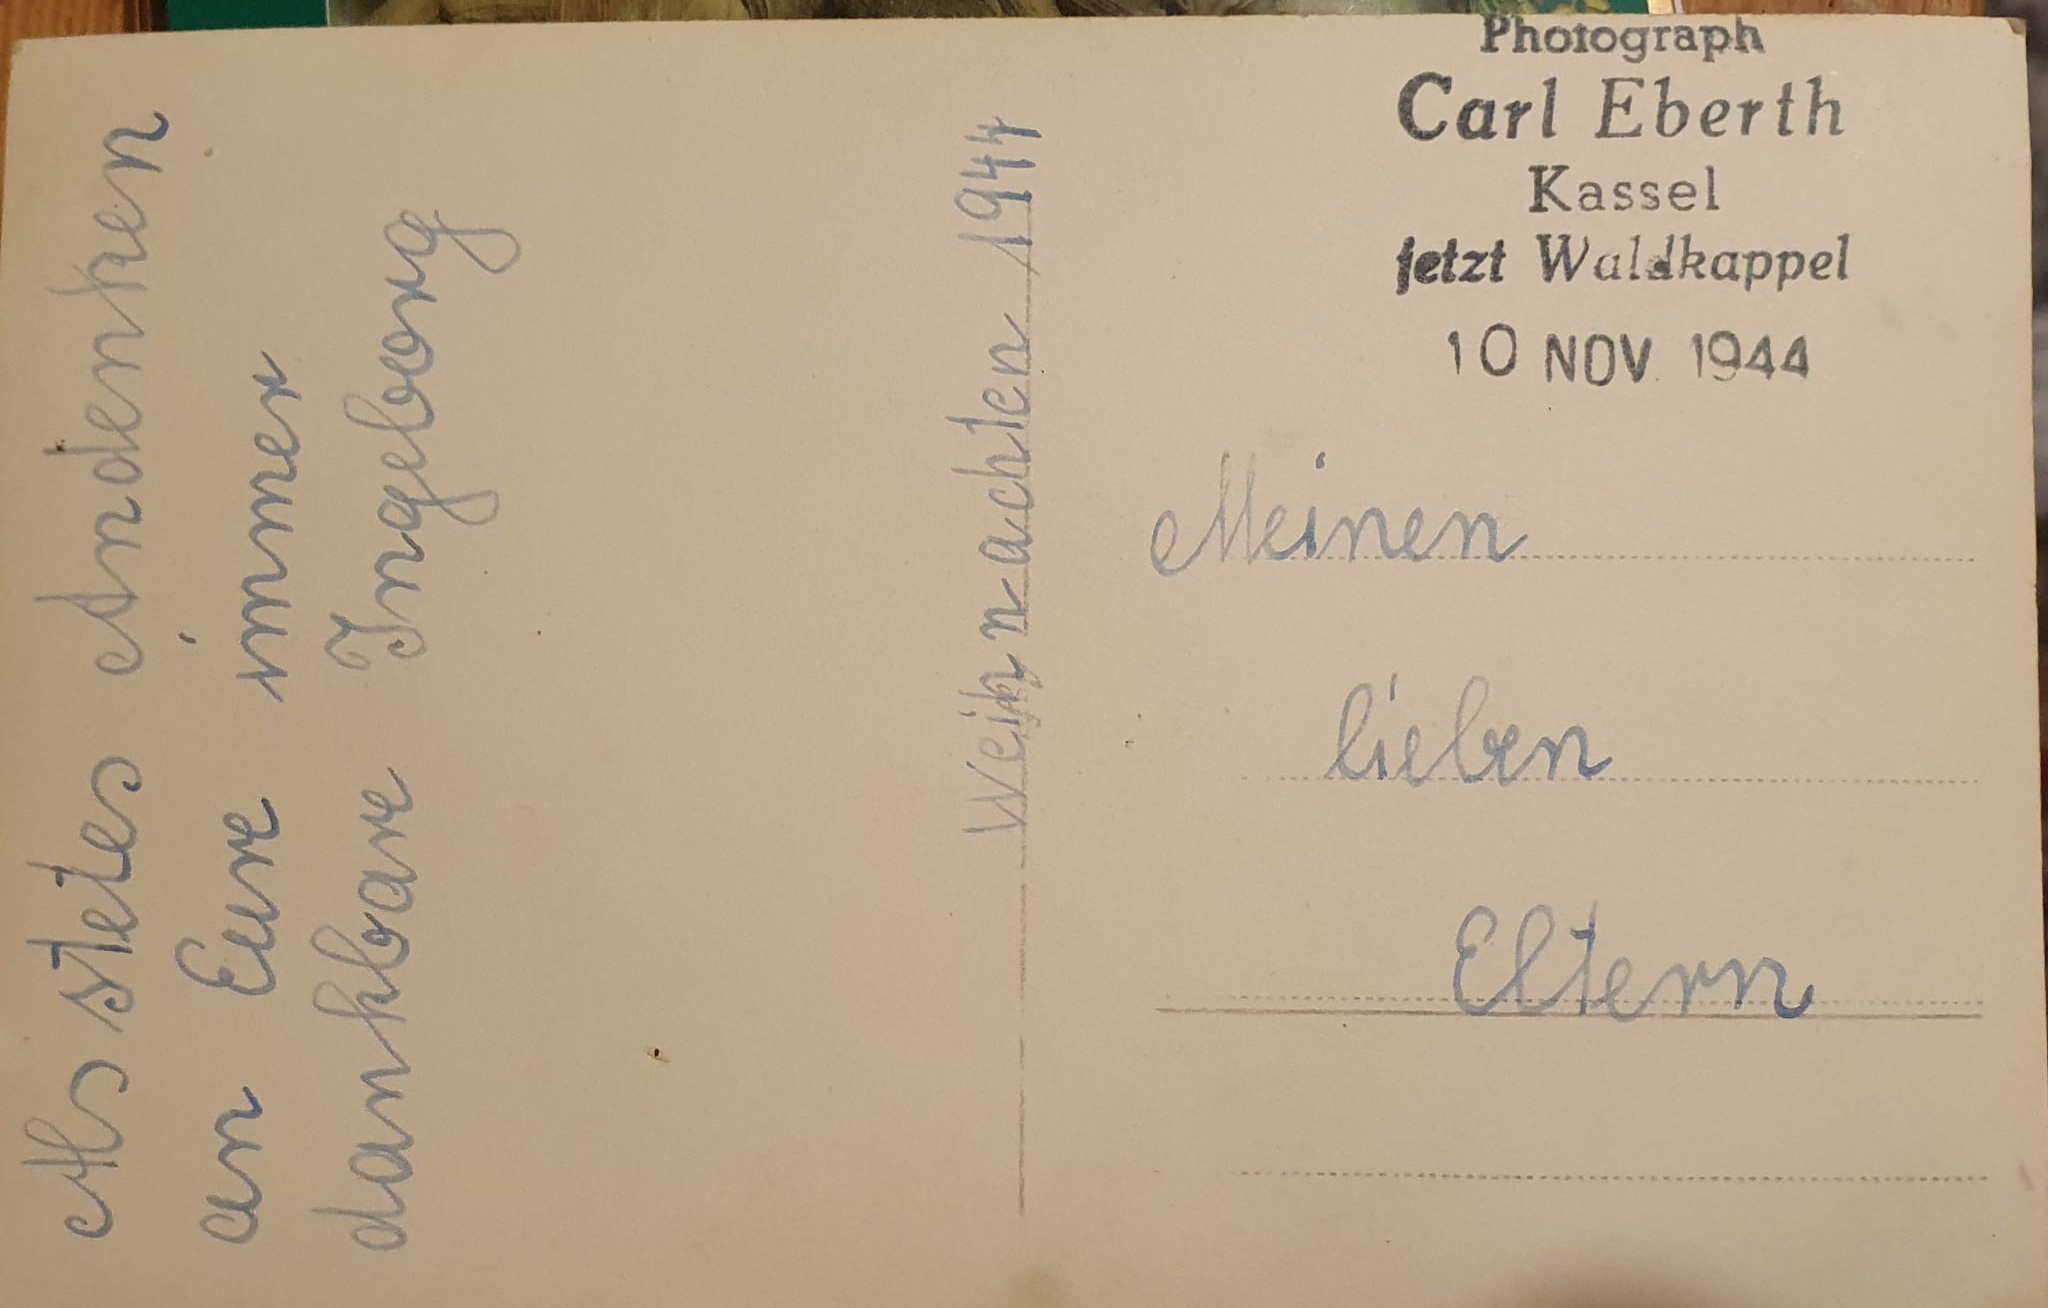 Als stetes Andenken
an Eure immer
dankbare Ingeborg
Weihnachten 1944
Photograph
Carl Eberth
Kassel
jetzt Waldkappel
10 NOV. 1944
Meinen
lieben
Eltern